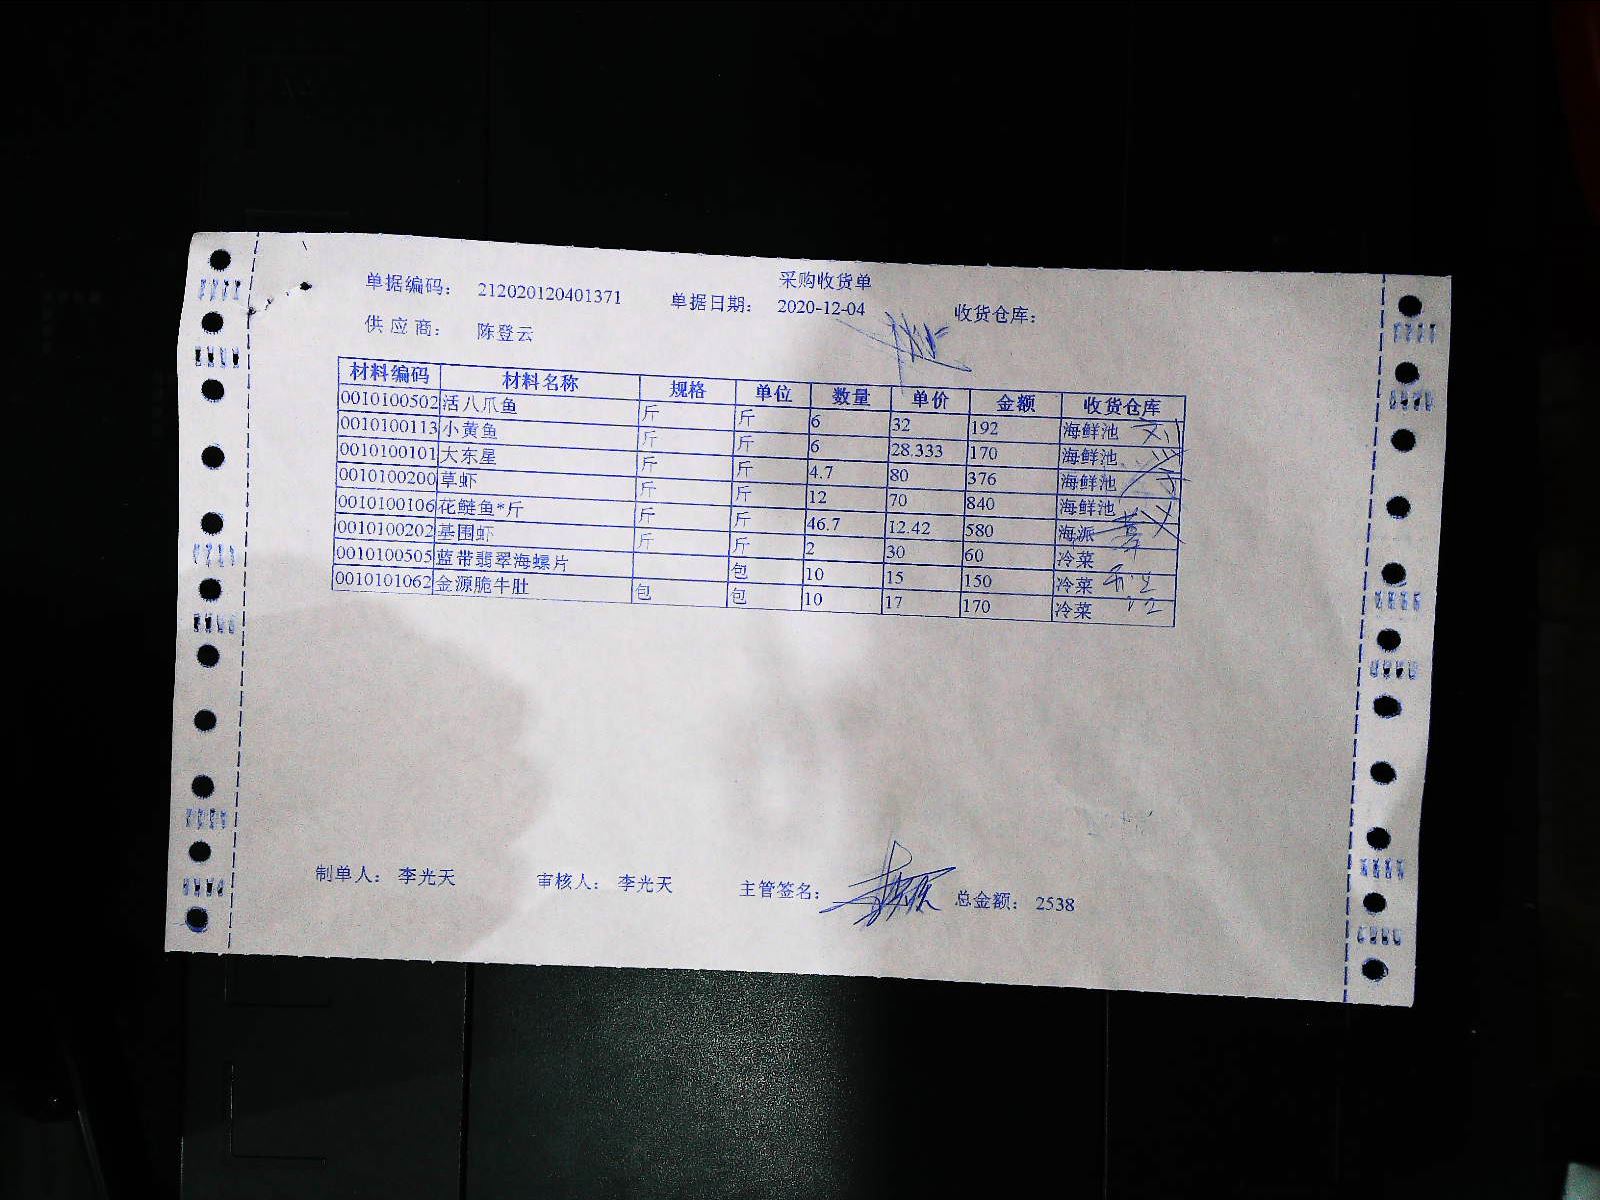 采购收货单
单据编码： 212020120401371 单据日期： 2020-12-04 收货仓库：
供 应 商： 陈登云
材料编码 材料名称 规格 单位 数量 单价 金额 收货仓库
0010100502 活八爪鱼 斤 斤 6 32 192 海鲜池
0010100113 小黄鱼 斤 斤 6 28.333 170 海鲜池
0010100101 大东星 斤 斤 4.7 80 376 海鲜池
0010100200 草虾 斤 斤 12 70 840 海鲜池
0010100106 花鲢鱼*斤 斤 斤 46.7 12.42 580 海派
0010100202 基围虾 斤 斤 2 30 60 冷菜
0010100505 蓝带翡翠海螺片 包 10 15 150 冷菜
0010101062 金源脆牛肚 包 包 10 17 170 冷菜
制单人： 李光天 审核人： 李光天 主管签名： 总金额： 2538